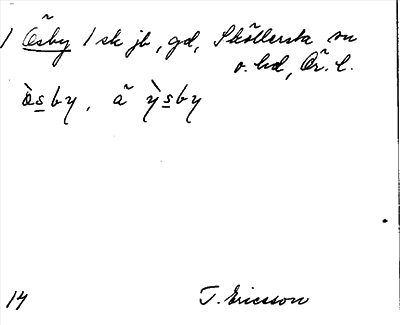 / Õsby / sk jb, gd, Sköllersta sn
o. hd, Ör. l.
òsby, å ỳsby
14 T. Ericsson